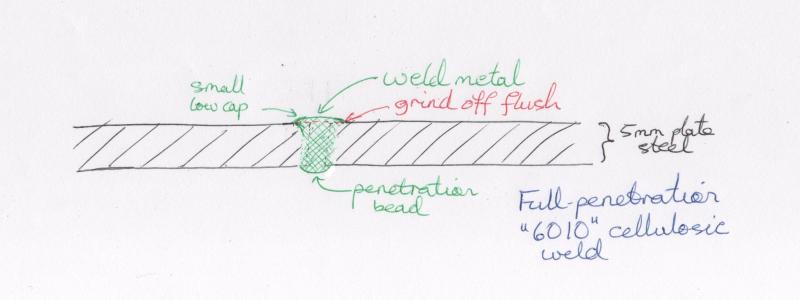 small
low cap
weld metal
grind off flush
5mm plate
steel
penetration
bead
Full-penetration
"6010" cellulosic
weld